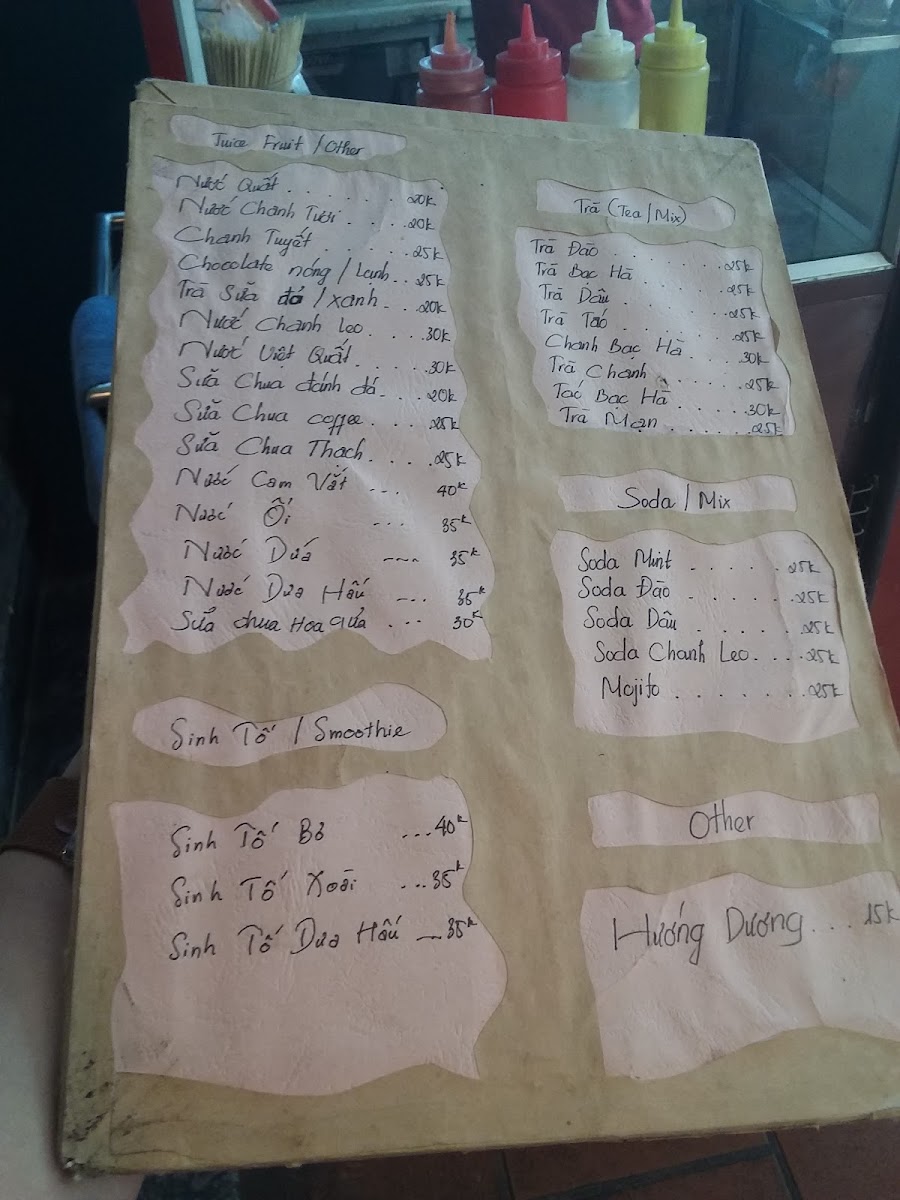 Juice Fruit / Other
Nước Quất . . . . . . . 20k
Nước Chanh Tươi . . . . 20k
Chanh Tuyết . . . . . . 25k
Chocolate nóng / Lạnh . . 25k
Trà Sữa đỏ / xanh . . . . 20k
Nước Chanh Leo . . . . 30k
Nước Việt Quất . . . . . 30k
Sữa Chua đánh đá . . . . 20k
Sữa Chua coffee . . . . 25k
Sữa Chua Thạch . . . . 25k
Nước Cam Vắt ... 40k
Nước Ổi ... 35k
Nước Dứa ---- 35k
Nước Dưa Hấu ... 35k
Sữa chua Hoa quả ... 30k
Sinh Tố / Smoothie
Sinh Tố Bơ ... 40k
Sinh Tố Xoài ... 35k
Sinh Tố Dưa Hấu ... 35k
Trà (Tea / Mix)
Trà Đào . . . . . . . 25k
Trà Bạc Hà . . . . . . 25k
Trà Dâu . . . . . . . 25k
Trà Táo . . . . . . . 25k
Chanh Bạc Hà . . . . 30k
Trà Chanh . . . . . . 25k
Táo Bạc Hà . . . . . . 30k
Trà Mạn . . . . . . . 25k
Soda / Mix
Soda Mint . . . . . . 25k
Soda Đào . . . . . . . 25k
Soda Dâu . . . . . . . 25k
Soda Chanh Leo . . . . 25k
Mojito . . . . . . . 25k
Other
Hướng Dương . . . 15k